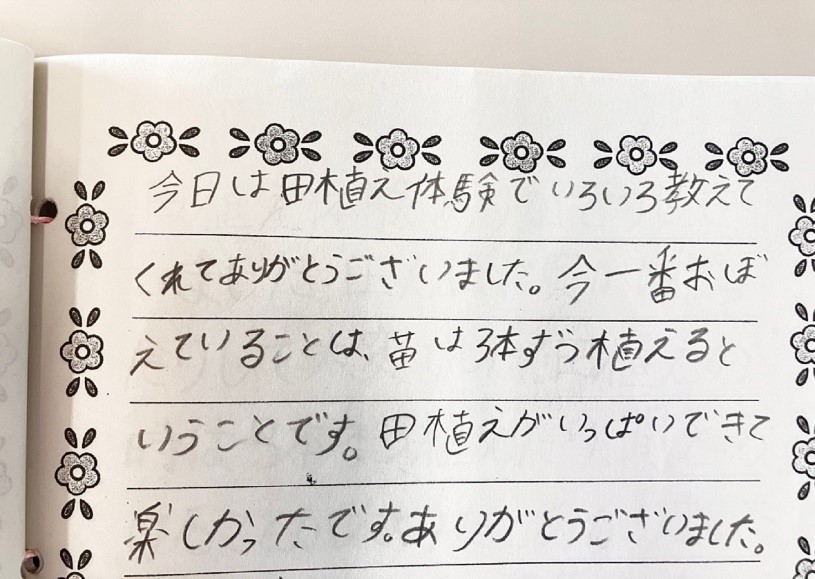 今日は田植え体験でいろいろ教えて
くれてありがとうございました。今一番おぼ
えていることは、苗は3本ずつ植えると
いうことです。田植えがいっぱいできて
楽しかったです。ありがとうございました。